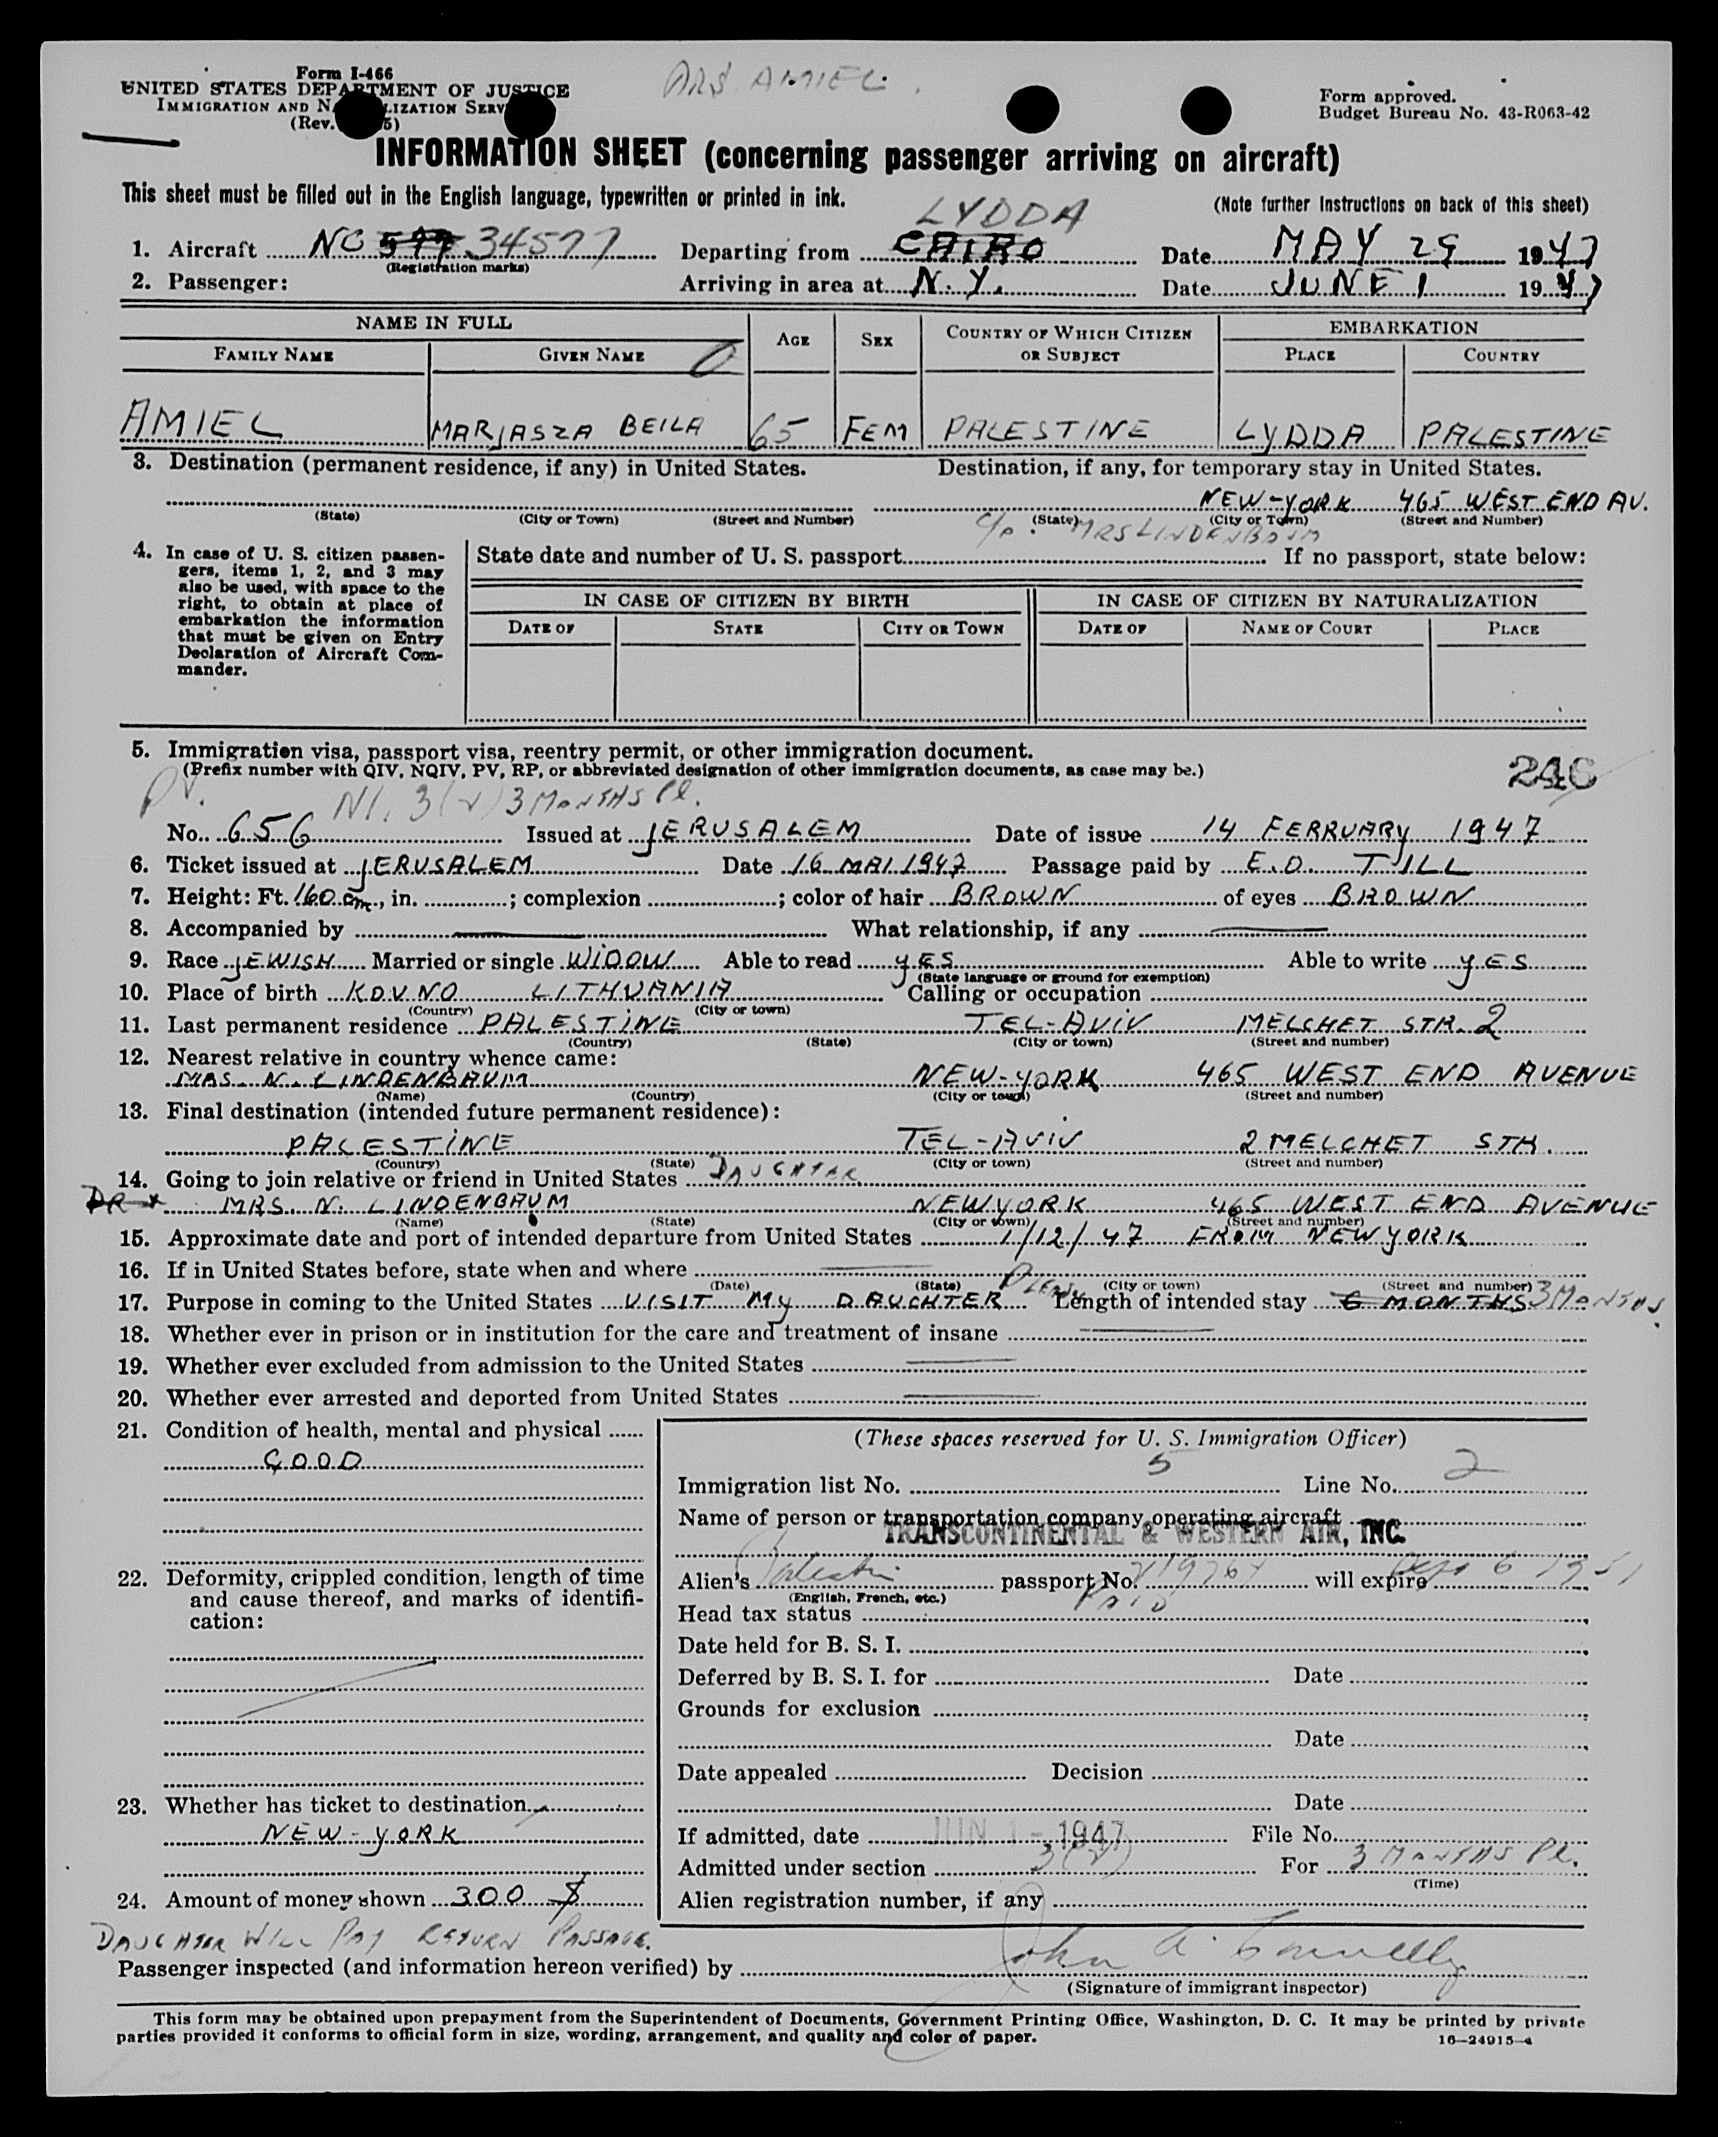 Form I-466
UNITED STATES DEPARTMENT OF JUSTICE
IMMIGRATION AND NATURALIZATION SERV
(Rev. 5)
MRS AMIEL.
Form approved.
Budget Bureau No. 43-R063-42
INFORMATION SHEET (concerning passenger arriving on aircraft)
This sheet must be filled out in the English language, typewritten or printed in ink.
(Note further instructions on back of this sheet)
LYDDA
1. Aircraft NC 577 34577 Departing from CAIRO Date MAY 29 1947
(Registration marks)
2. Passenger: Arriving in area at N.Y. Date JUNE 1 1947
NAME IN FULL AGE SEX COUNTRY OF WHICH CITIZEN OR SUBJECT EMBARKATION
FAMILY NAME GIVEN NAME PLACE COUNTRY
AMIEL MARJASZA BEILA 65 FEM PALESTINE LYDDA PALESTINE
3. Destination (permanent residence, if any) in United States. Destination, if any, for temporary stay in United States.
NEW-YORK 465 WEST END AV.
(State) (City or Town) (Street and Number) (State) (City or Town) (Street and Number)
C/o. MRS LINDENBAUM
4. In case of U. S. citizen passengers, items 1, 2, and 3 may also be used, with space to the right, to obtain at place of embarkation the information that must be given on Entry Declaration of Aircraft Commander.
State date and number of U. S. passport If no passport, state below:
IN CASE OF CITIZEN BY BIRTH IN CASE OF CITIZEN BY NATURALIZATION
DATE OF STATE CITY OR TOWN DATE OF NAME OF COURT PLACE
5. Immigration visa, passport visa, reentry permit, or other immigration document.
(Prefix number with QIV, NQIV, PV, RP, or abbreviated designation of other immigration documents, as case may be.)
246
PV. NI. 3(2) 3 MONTHS Pl.
No. 656 Issued at JERUSALEM Date of issue 14 FERRUARY 1947
6. Ticket issued at JERUSALEM Date 16 MAI 1947 Passage paid by E.D. TILL
7. Height: Ft. 160 cm, in. ; complexion ; color of hair BROWN of eyes BROWN
8. Accompanied by What relationship, if any
9. Race JEWISH Married or single WIDOW Able to read YES Able to write YES
(State language or ground for exemption)
10. Place of birth KOVNO LITHUANIA Calling or occupation
(Country) (City or town)
11. Last permanent residence PALESTINE TEL-AVIV MELCHET STR. 2
(Country) (State) (City or town) (Street and number)
12. Nearest relative in country whence came:
MRS. N. LINDENBAUM NEW-YORK 465 WEST END AVENUE
(Name) (Country) (City or town) (Street and number)
13. Final destination (intended future permanent residence):
PALESTINE TEL-AVIV 2 MELCHET STR.
(Country) (State) (City or town) (Street and number)
14. Going to join relative or friend in United States DAUGHTER
DR MRS. N. LINDENBAUM NEWYORK 465 WEST END AVENUE
(Name) (State) (City or town) (Street and number)
15. Approximate date and port of intended departure from United States 1/12/47 FROM NEWYORK
16. If in United States before, state when and where
(Date) (State) (City or town) (Street and number)
17. Purpose in coming to the United States VISIT MY DAUGHTER Length of intended stay 6 MONTHS 3 MONTHS
18. Whether ever in prison or in institution for the care and treatment of insane
19. Whether ever excluded from admission to the United States
20. Whether ever arrested and deported from United States
21. Condition of health, mental and physical
GOOD
22. Deformity, crippled condition, length of time and cause thereof, and marks of identification:
23. Whether has ticket to destination
NEW-YORK
24. Amount of money shown 300 $
(These spaces reserved for U. S. Immigration Officer)
Immigration list No. 5 Line No. 2
Name of person or transportation company operating aircraft
TRANSCONTINENTAL & WESTERN AIR, INC.
Alien's passport No. will expire 6 1951
(English, French, etc.)
Head tax status PAID
Date held for B. S. I.
Deferred by B. S. I. for Date
Grounds for exclusion
Date
Date appealed Decision
Date
If admitted, date JUN 1 - 1947 File No.
Admitted under section 3(2) For 3 MONTHS Pl.
(Time)
Alien registration number, if any
DAUGHTER WILL PAY RETURN PASSAGE.
Passenger inspected (and information hereon verified) by John A. Connelly
(Signature of immigrant inspector)
This form may be obtained upon prepayment from the Superintendent of Documents, Government Printing Office, Washington, D. C. It may be printed by private
parties provided it conforms to official form in size, wording, arrangement, and quality and color of paper.
16—24915-4